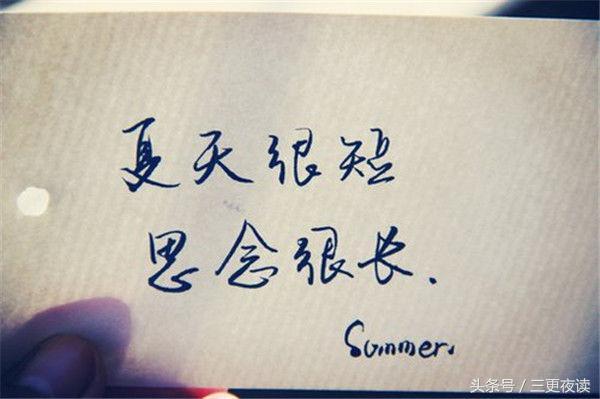 夏天很短
思念很长.
Summer.
头条号 / 三更夜读